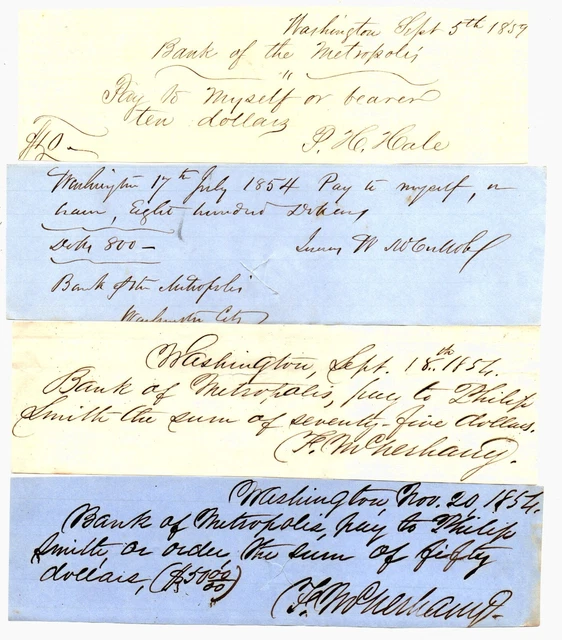 Washington Sept 5th 1859
Bank of the Metropolis
"
Pay to Myself or bearer
ten dollars
$10 —
P. H. Hale
Washington 17th July 1854 Pay to myself, or
bearer, Eight hundred Dollars
Dolls 800 —
W McCulloh
Bank of the Metropolis
Washington City
Washington, Sept. 18th 1854.
Bank of Metropolis, pay to Philip
Smith the sum of seventy-five dollars.
F. McNerhany.
Washington, Nov. 20, 1854.
Bank of Metropolis, pay to Philip
Smith, or order, the sum of fifty
dollars, ($50 00/00)
F. McNerhany.